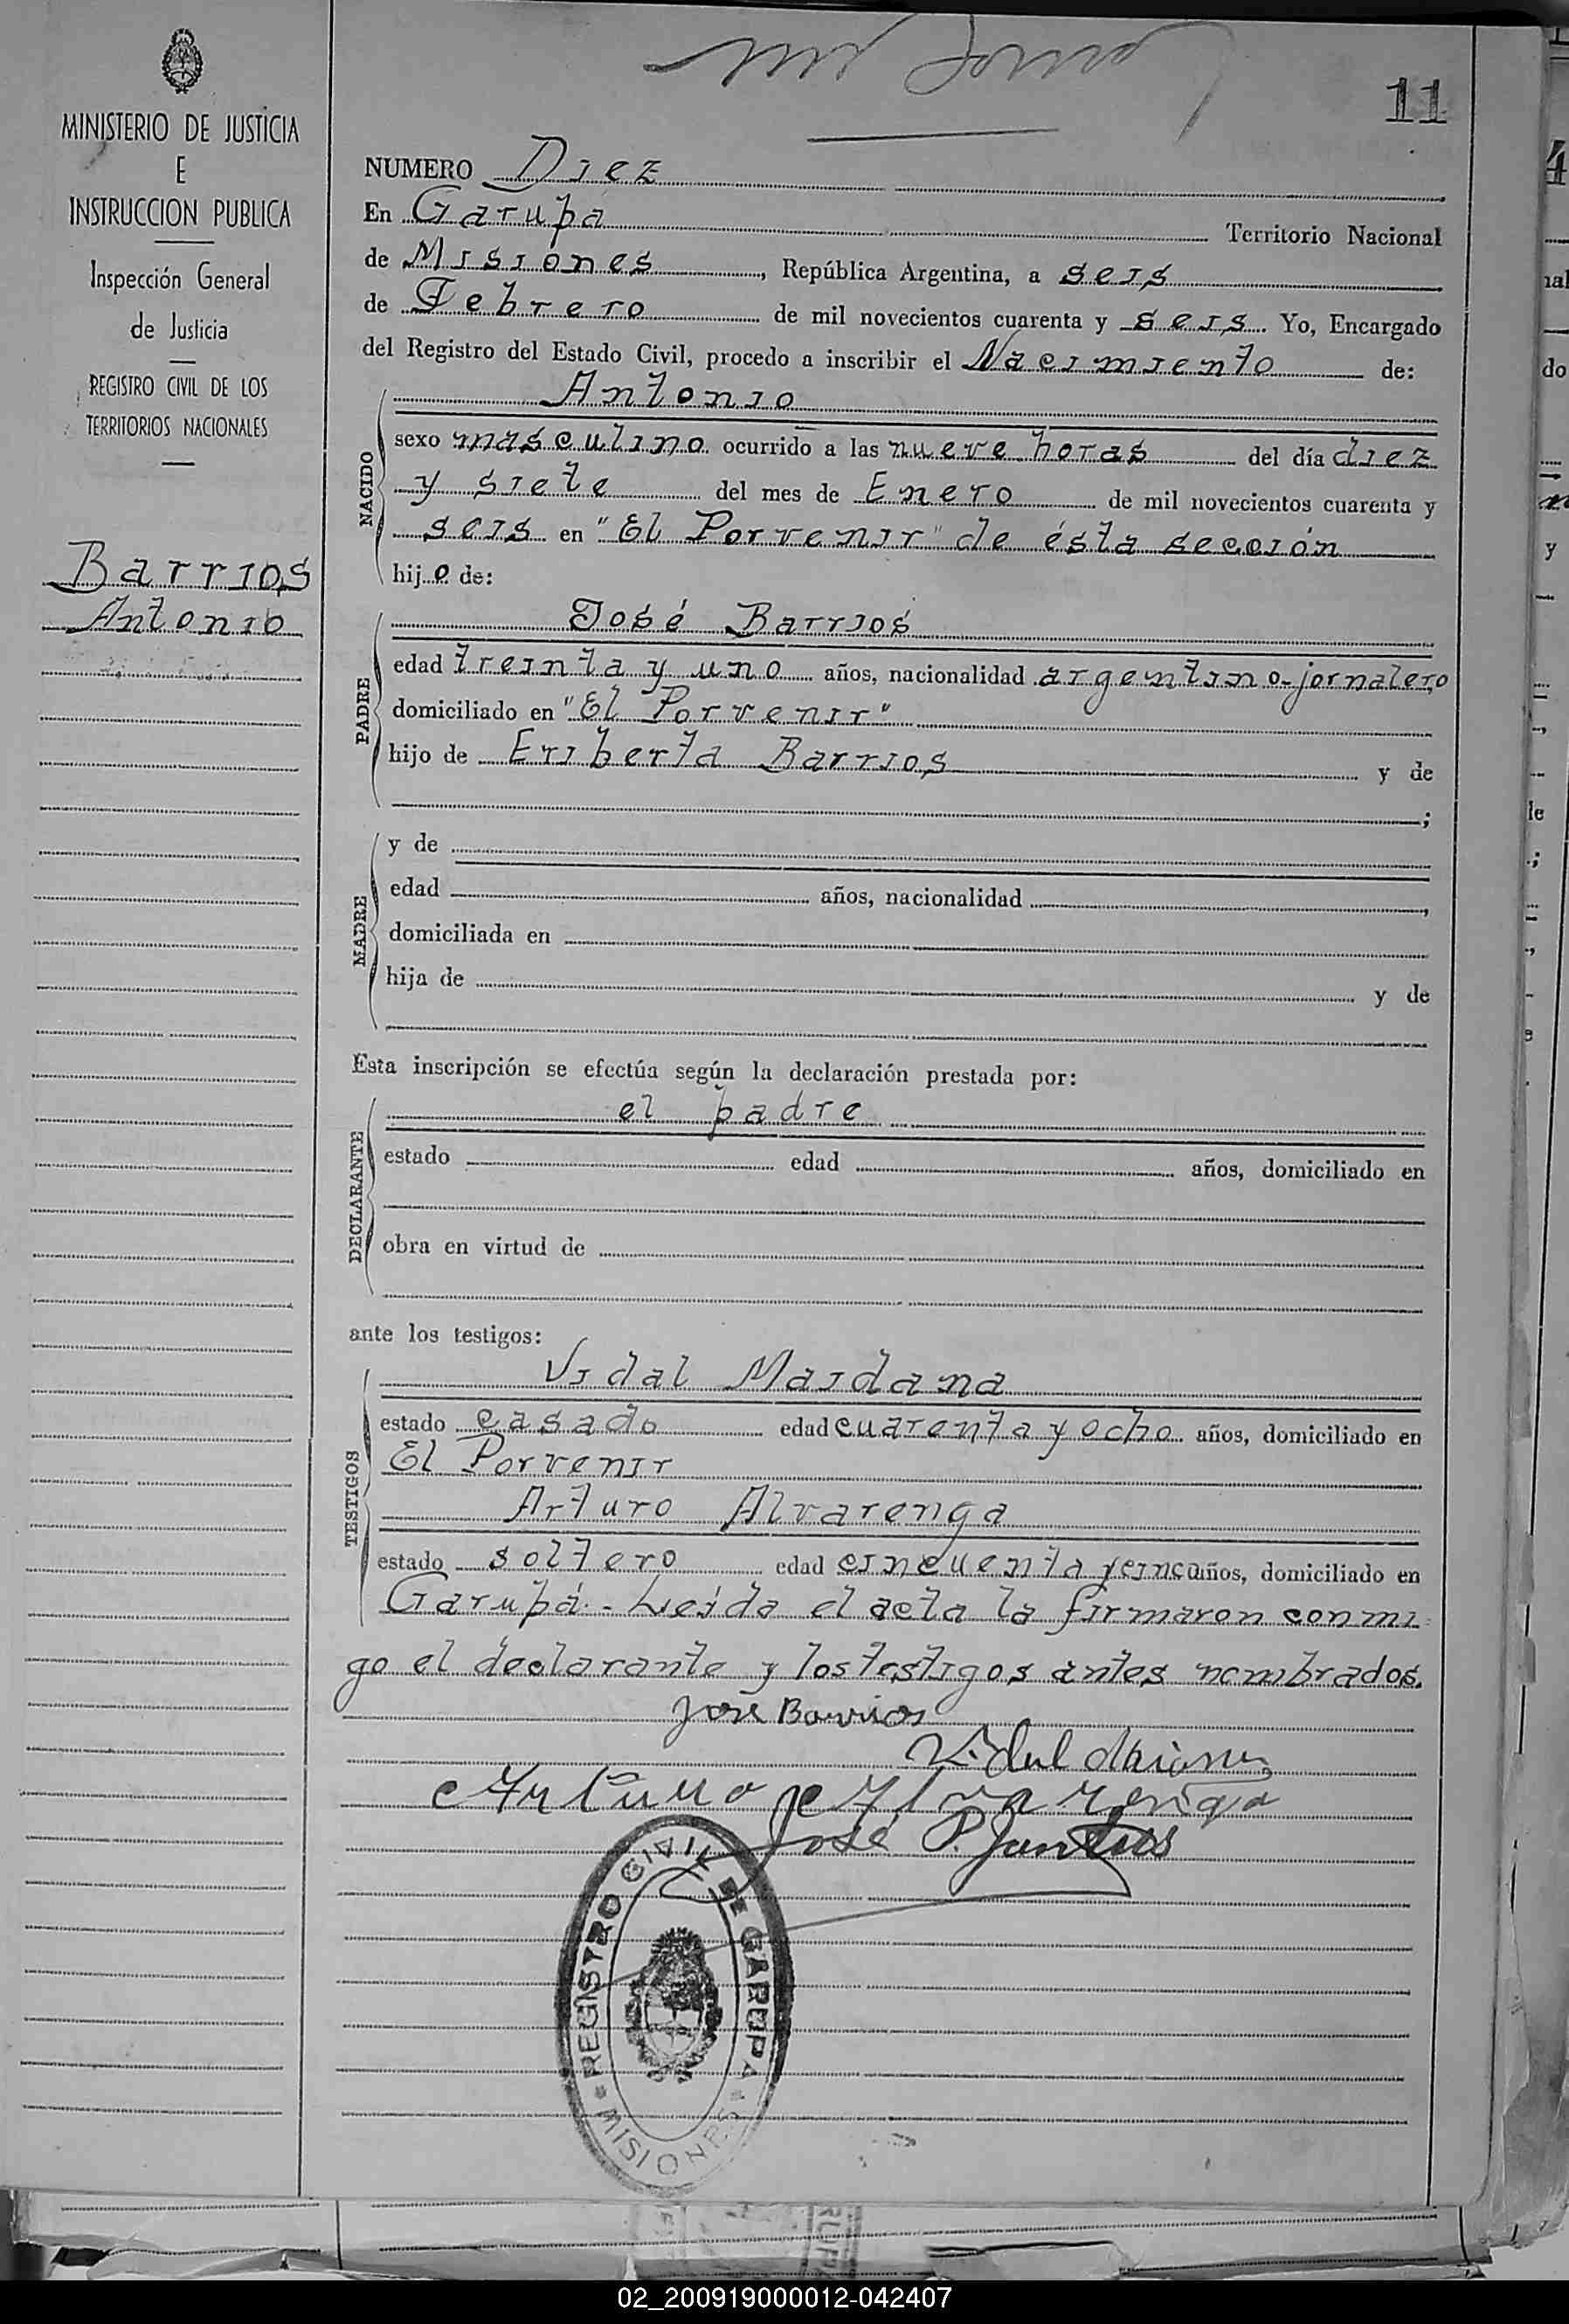 11
MINISTERIO DE JUSTICIA
E
INSTRUCCION PUBLICA
Inspección General
de Justicia
REGISTRO CIVIL DE LOS
TERRITORIOS NACIONALES
Barrios
Antonio
NUMERO Diez
En Garupa Territorio Nacional
de Misiones, República Argentina, a seis
de Febrero de mil novecientos cuarenta y seis. Yo, Encargado
del Registro del Estado Civil, procedo a inscribir el Nacimiento de:
NACIDO
Antonio
sexo masculino ocurrido a las nueve horas del día diez
y siete del mes de Enero de mil novecientos cuarenta y
seis en "El Porvenir" de ésta sección
hijo de:
PADRE
José Barrios
edad treinta y uno años, nacionalidad argentino-jornalero
domiciliado en "El Porvenir"
hijo de Eriberta Barrios y de
;
MADRE
y de
edad años, nacionalidad ,
domiciliada en
hija de y de
Esta inscripción se efectúa según la declaración prestada por:
DECLARANTE
el padre
estado edad años, domiciliado en
obra en virtud de
ante los testigos:
TESTIGOS
Vidal Maidana
estado casado edad cuarenta y ocho años, domiciliado en
El Porvenir
Arturo Alvarenga
estado soltero edad cincuenta y cinco años, domiciliado en
Garupá.- Leída el acta la firmaron conmi-
go el declarante y los testigos antes nombrados.
José Barrios
Vidal
Arturo Alvarenga
José P.
REGISTRO CIVIL DE GARUPA
MISIONES
02_200919000012-042407